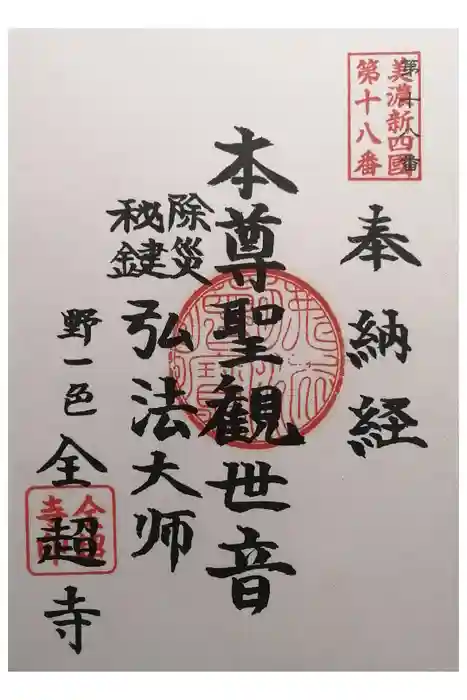 美濃新四國
第十八番
第十八番
奉納経
本尊聖観世音
除災
秘鍵
弘法大师
野一色
全超寺